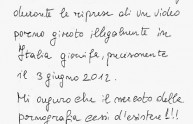 durante le riprese di un video
porno girato illegalmente in
Italia giovife, precisamente
il 3 giugno 2012.
Mi auguro che il mercato della
pornografia cessi d'esistere!!!